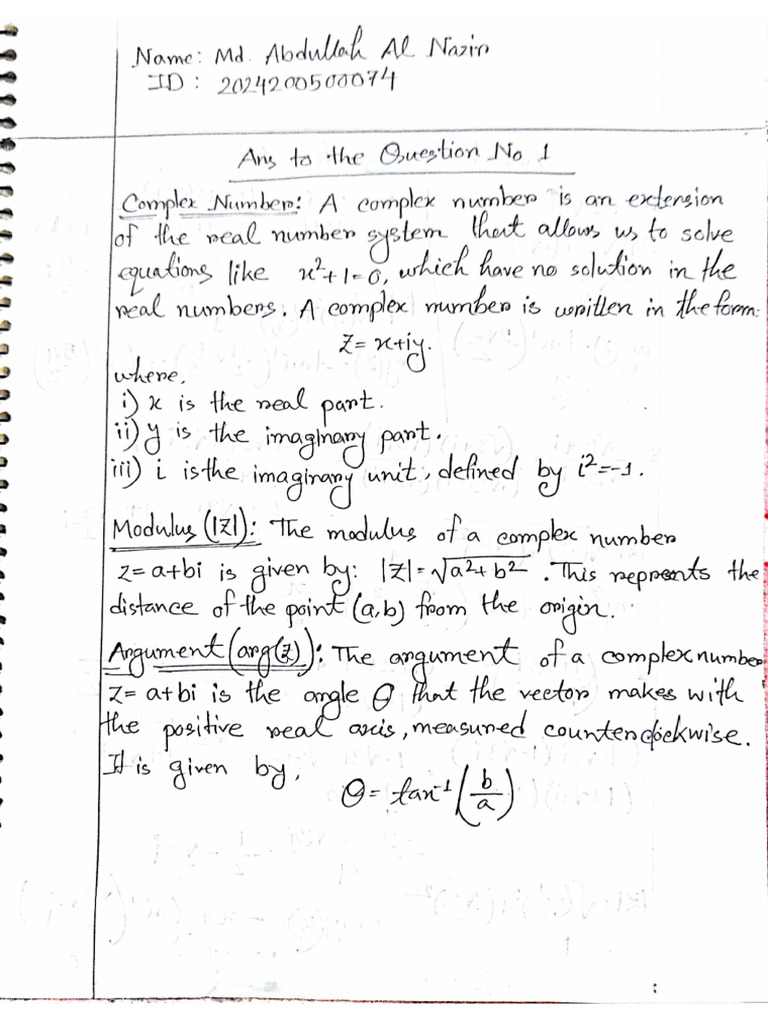 Name: Md. Abdullah Al Nazir
ID: 2024200500074
Ans to the Question No 1
Complex Number: A complex number is an extension
of the real number system that allows us to solve
equations like x²+1=0, which have no solution in the
real numbers. A complex number is written in the form:
z=x+iy.
where,
i) x is the real part.
ii) y is the imaginary part.
iii) i is the imaginary unit, defined by i²=-1.
Modulus (|z|): The modulus of a complex number
z=a+bi is given by: |z|=√a²+b². This reprents the
distance of the point (a,b) from the origin.
Argument (arg(z)): The argument of a complex number
z=a+bi is the angle θ that the vector makes with
the positive real axis, measured counterclockwise.
It is given by,
θ=tan⁻¹(b/a)